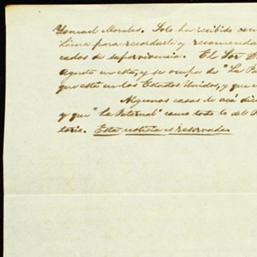 Ysmael Morales. Solo ha recibido una
Lima para recordarle y recomenda
cados de supervivencia. El Sor D
Agusto en esta, y se ocupa de "La Pa
que está en los Estados Unidos, y que
Algunas casas de acá di
y que "La Paternal" como todo lo de
toria. Esta noticia es reservada.